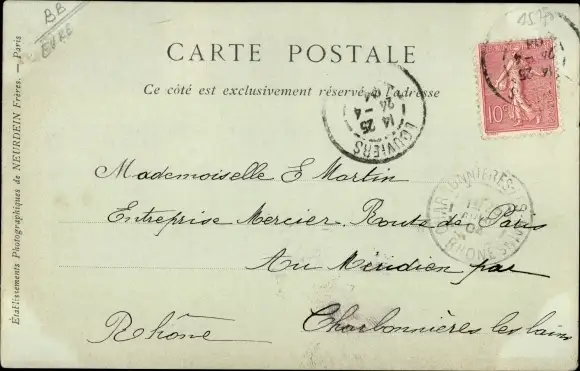 BB
EURE
15
CARTE POSTALE
Ce côté est exclusivement réservé à l'adresse
LOUVIERS
14 25
24 -4
04
10c
CHARBONNIÈRES-LES-BAINS
RHÔNE
04
Mademoiselle E Martin
Entreprise Mercier. Route de Paris
Au Méridien par
Charbonnières les bains
Rhône
Établissements Photographiques de NEURDEIN Frères. — Paris